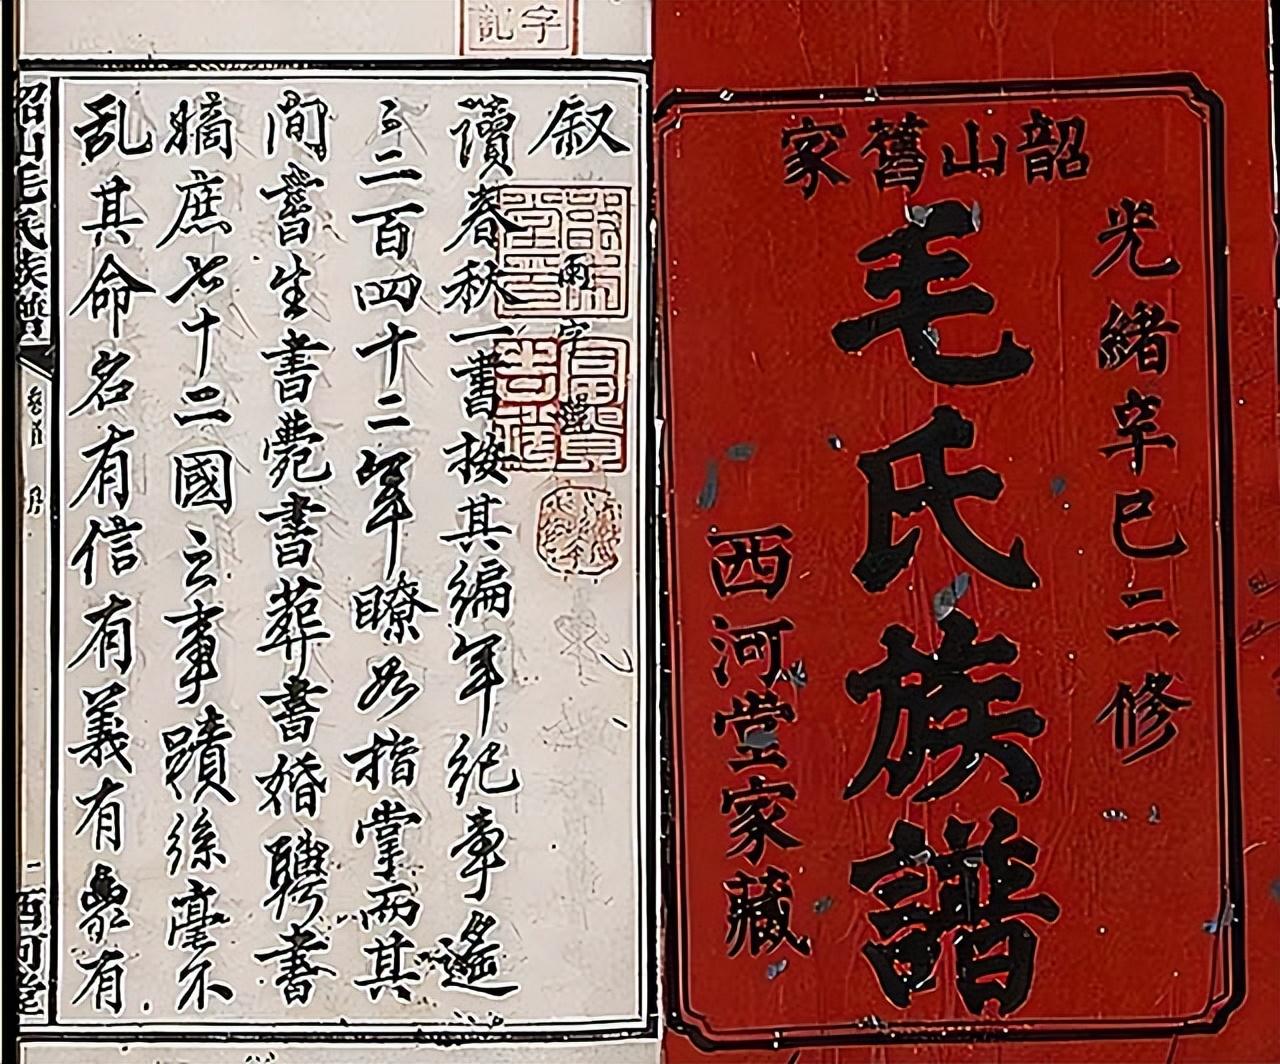 韶山舊家
光緒辛巳二修
毛氏族譜
西河堂家藏
叙
讀春秋一書按其編年紀事遙
〻二百四十二年瞭如指掌而其
間書生書薨書葬書婚聘書
嫡庶七十二國之事蹟絲毫不
乱其命名有信有義有象有
韶山毛氏族譜
卷首
一
西河堂
字記